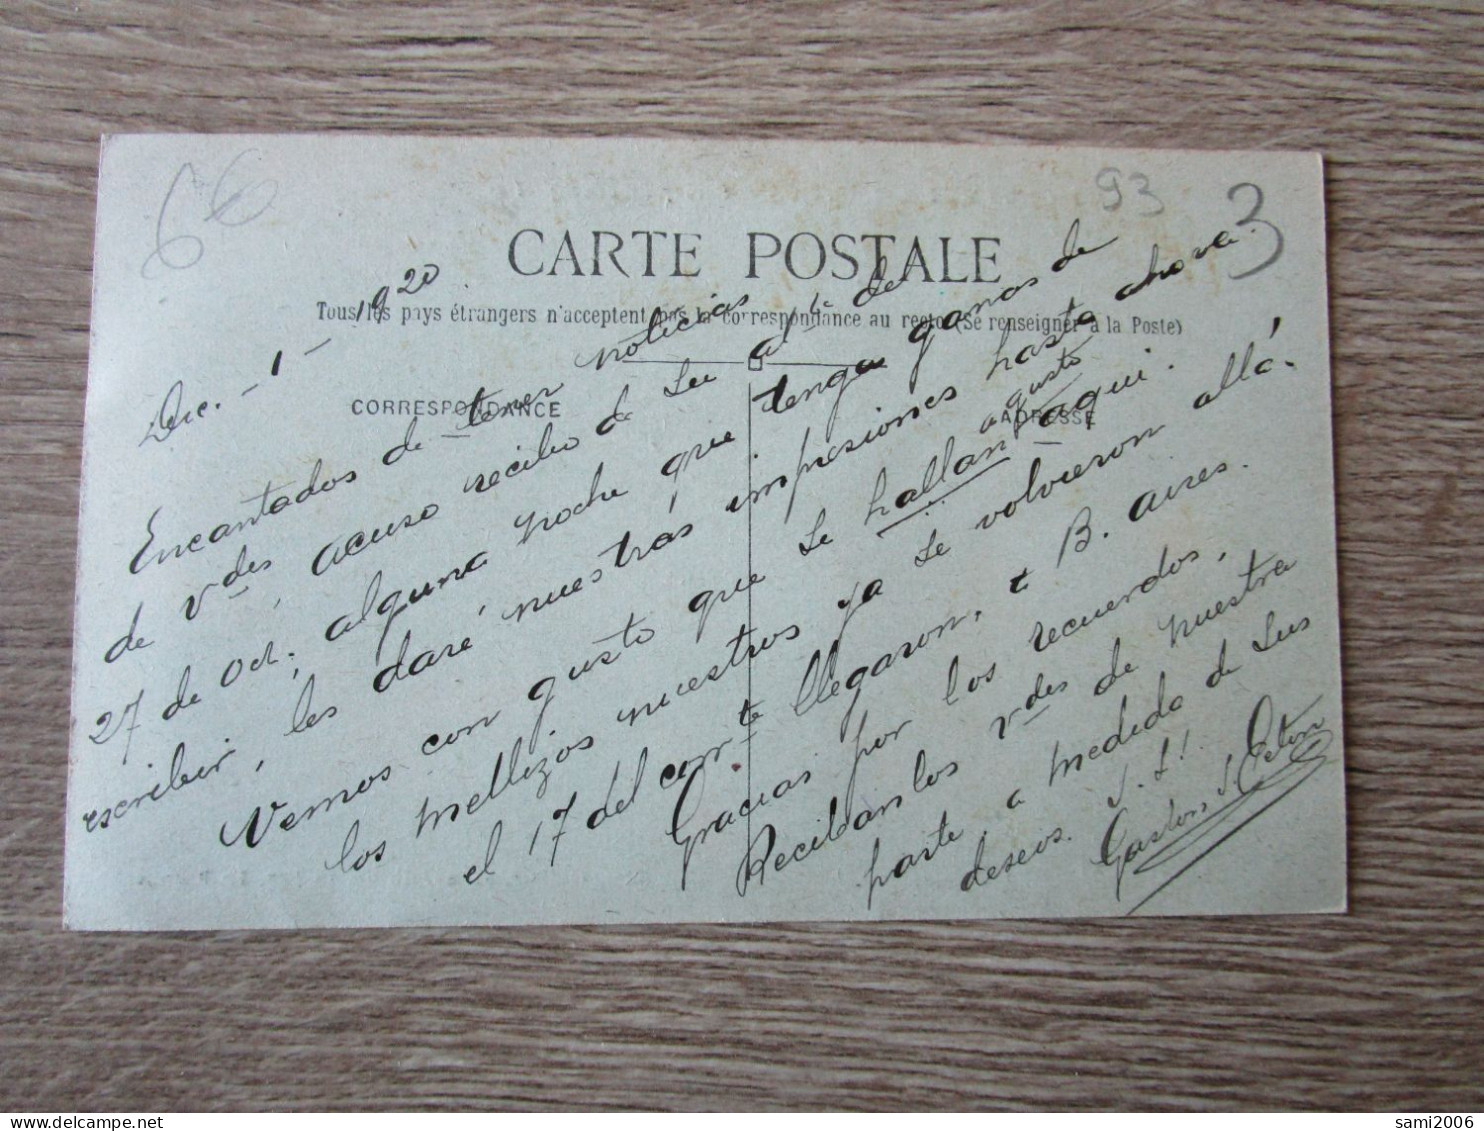 66
93
3
CARTE POSTALE
Tous les pays étrangers n'acceptent pas la correspondance au recto (Se renseigner à la Poste)
CORRESPONDANCE
ADRESSE
Dic. - 1 - 1920
Encantados de tener noticias
de Vdes acuso recibo de su at. de
27 de Oct, alguna noche que tenga ganas de
escribir, les daré nuestras impresiones hasta ahora.
Vemos con gusto que se hallan a gusto aqui.
los mellizos nuestros ya se volvieron allá.
el 17 del corrte llegaron, a B. aires.
Gracias por los recuerdos,
Reciban los Vdes de nuestra
parte, a medida de sus
deseos. S. S!
Gaston
sami2006